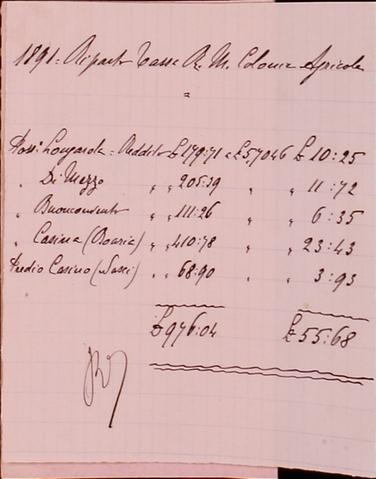 1891: Riparto Tassa R. M. Colonia Agricola
"
Poss: Longarola = Reddito £ 179:71 a £ 5,7046 £ 10:25
" Di Mezzo " " 205:39 " " 11:72
" Buonconvento " " 111:26 " " 6:35
" Casina (Boaria) " " 410:78 " " 23:43
Predio Casino (Sassi) " " 68:90 " " 3:93
£ 976:04 £ 55:68